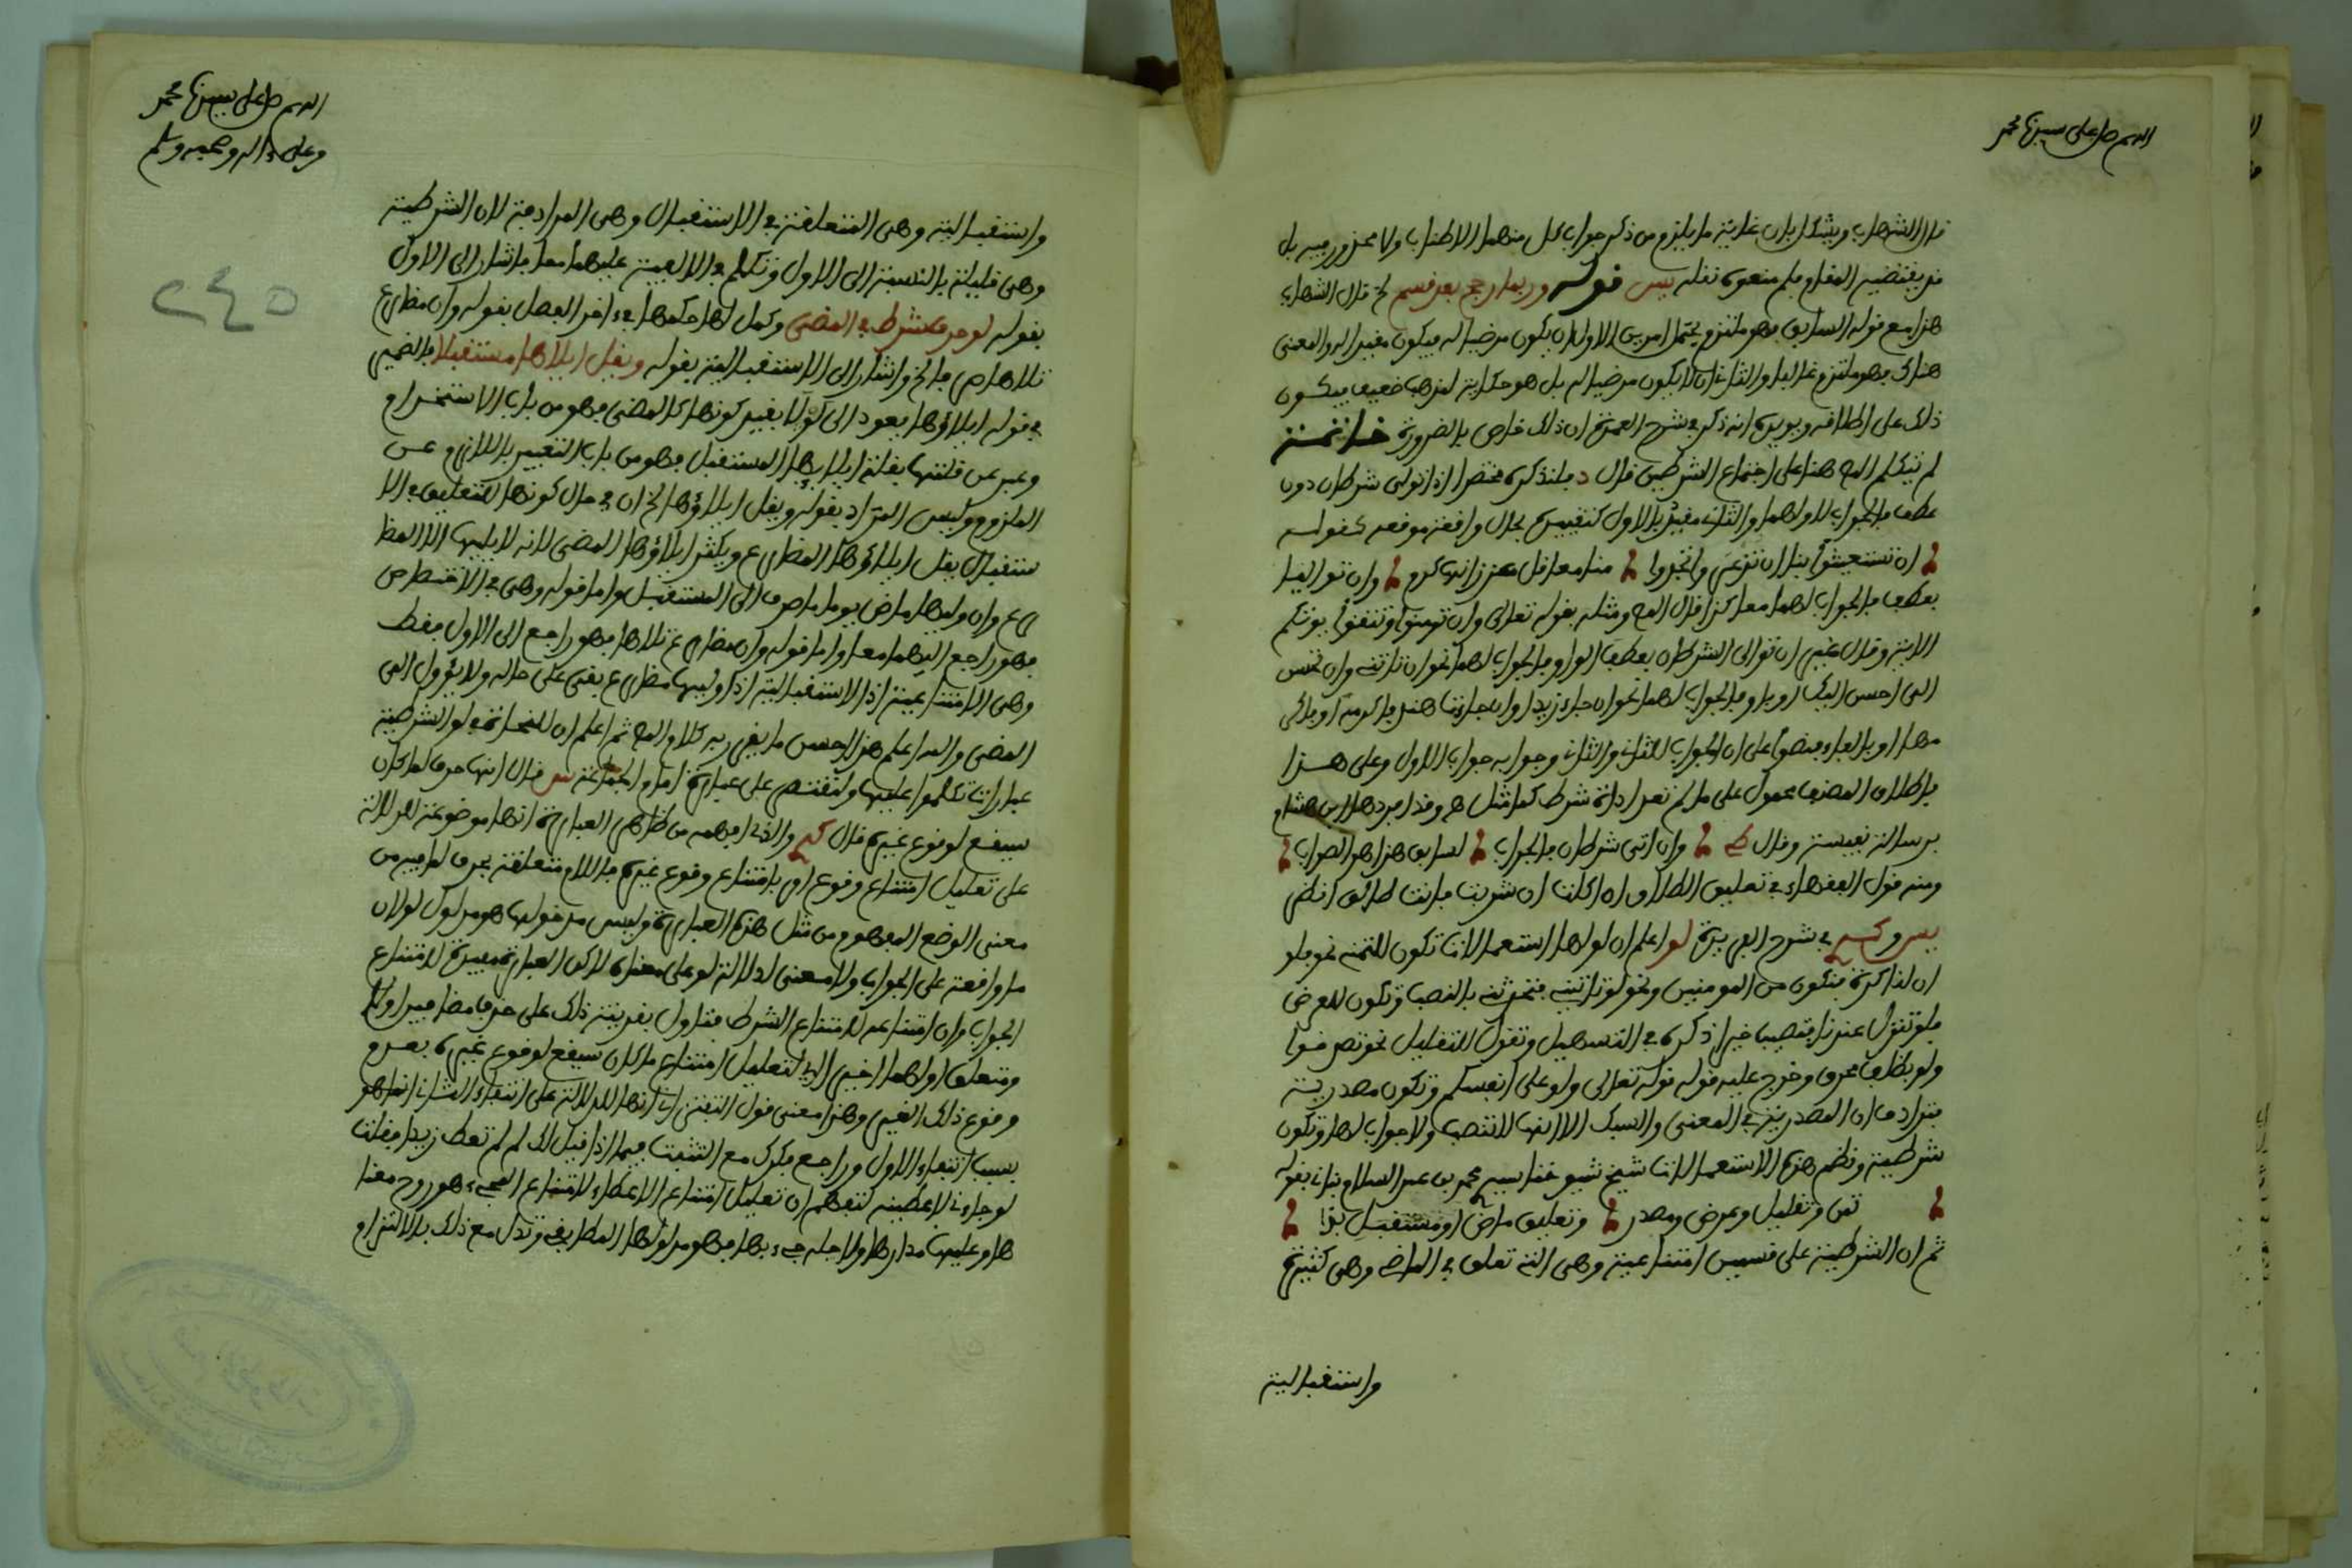 اللهم صل على سيدنا محمد
قال الشهاب ويشكل بان غاية ما يلزم من ذكر جواب كل منهما الاطناب ولا محذور فيه بل
قد يقتضيه المقام فلم منعوه نقله يس قوله وربما رجح بعد قسم الخ قال الشهاب
هذا مع قوله السابق فهو ملتزم يحتمل امرين الاول ان يكون مرضيا له فيكون مقيدا له والمعنى
هناك فهو ملتزم غالبا والثاني ان لا يكون مرضيا له بل هو حكاية لمذهب ضعيف فيكون
ذلك على اطلاقه ويويده انه ذكر في شرح العمدة ان ذلك خاص بالضرورة خاتمة
لم يتكلم المص هنا على اجتماع الشرطين قال د فلنذكره مختصرا اذا توالى شرطان دون
عطف فالجواب لاولهما والثاني مقيد بالاول كتقييده بحال واقعة موقعه كقوله
ان تستغيثوا بنا ان تذعروا تجدوا منا معاقل عز زانها كرم وان تواليا
بعطف فالجواب لهما معا كذا قال المص ومثله بقوله تعالى وان تومنوا وتتقوا يوتكم
الاية وقال غيره ان توالى الشرطان بعطف الواو فالجواب لهما نحو ان تاتني وان تحسن
الي احسن اليك او باو فالجواب لاحدهما نحو ان جاء زيد او ان جاءت هند فاكرمه او فاكر
مها او بالفاء فنصوا على ان الجواب للثاني والثاني وجوابه جواب الاول وعلى هذا
فاطلاق المصنف محمول على ما لم تعد اداة شرط كما مثل هو وقد افردها ابن هشام
برسالة نفيسة وقال وان اتى شرطان فالجواب لسابق هذا هو الصواب
ومنه قول الفقهاء في تعليق الطلاق ان اكلت ان شربت فانت طالق انظر
يس و في شرح الفريدة لو اعلم ان لو لها استعمالات تكون للتمني نحو فلو
ان لنا كرة فنكون من المومنين ونحو لو تاتيني فتحدثني بالنصب وتكون للعرض
نحو لو تنزل عندنا فتصيب خيرا ذكره في التسهيل وتكون للتقليل نحو تصدقوا
ولو بظلف محرق وخرج عليه قوله تعالى ولو على انفسكم وتكون مصدرية
فترادف ان المصدرية في المعنى والسبك الا انها لا تنصب ولا جواب لها وتكون
شرطية ونظم هذه الاستعمالات شيخ شيوخنا سيد محمد بن عبد السلام بناني بقوله
تمن وتقليل وعرض ومصدر وتعليق ماض او مستقبل بدا
ثم ان الشرطية على قسمين امتناعية وهي التي تعلق في الماضي وهي كثيرة
واستقبالية
اللهم صل على سيدنا محمد
وعلى ءاله وصحبه وسلم
٢٤٥
واستقبالية وهي المتعلقة في الاستقبال وهي المرادفة لان الشرطية
وهي قليلة بالنسبة الى الاول وتكلم في الالفية عليهما معا فاشار الى الاول
بقوله لو حرف شرط في المضي وكمل لها حكمها في ءاخر الفصل بقوله وان مضارع
تلاها صرفا الخ واشار الى الاستقبالية بقوله ويقل ايلاؤها مستقبلا فالضمير
في قوله ايلاؤها يعود الى لو لا بقيد كونها كالمضي فهو من باب الاستخدام
وعبر عن قلتها بقلة ايلائها المستقبل فهو من باب التعبير باللازم عن
الملزوم وليس المراد بقوله ويقل ايلاؤها الخ ان في حال كونها للتعليق في الا
ستقبال يقل ايلاؤها المضارع ويكثر ايلاؤها المضي لانه لا يليها الا المضا
رع وان وليها ماض يوما ما صرف الى المستقبل واما قوله وهي في الاختصاص
فهو راجع اليهما معا واما قوله وان مضارع تلاها فهو راجع الى الاول فقط
وهي الامتناعية اذ الاستقبالية اذا وليها مضارع بقي على حاله ولا يؤول الى
المضي والله اعلم هذا احسن ما يقرر به كلام المص ثم اعلم ان للنحاة في لو الشرطية
عبارات تكلموا عليها ولنقتصر على عبارة امام الجماعة س قال انها حرف لما كان
سيقع لوقوع غيره قال والذي افهمه من ظاهر العبارة انها موضوعة للدلالة
على تعليل امتناع وقوع امر بامتناع وقوع غيره فاللام متعلقة بحرف لما فيه من
معنى الوضع المفهوم من مثل هذه العبارة وليس مدخولها هو مدلول لو لان
ما واقعة على الجواب ولا معنى لدلالة لو على معناه لاكن العبارة مفيدة لامتناع
الجواب وان امتناعه لامتناع الشرط فتاول بقرينة ذلك على حذف مضافين اولا
ومتعلق اولهما اخيرا اي لتعليل امتناع ما كان سيقع لوقوع غيره بعدم
وقوع ذلك الغير وهذا معنى قول التفتزاني انها للدلالة على انتفاء الثاني انما هو
بسبب انتفاء الاول وراجع فكرك مع التثبت فيما اذا قيل لك لم لم تعط زيدا فقلت
لو جاءني لاعطيته لتفهم ان تعليل امتناع الاعطاء لامتناع المجيء هو روح معنا
ها وعليها مدارها ولاجله جيء بها فهو مدلولها المطابقي وتدل مع ذلك بالالتزام